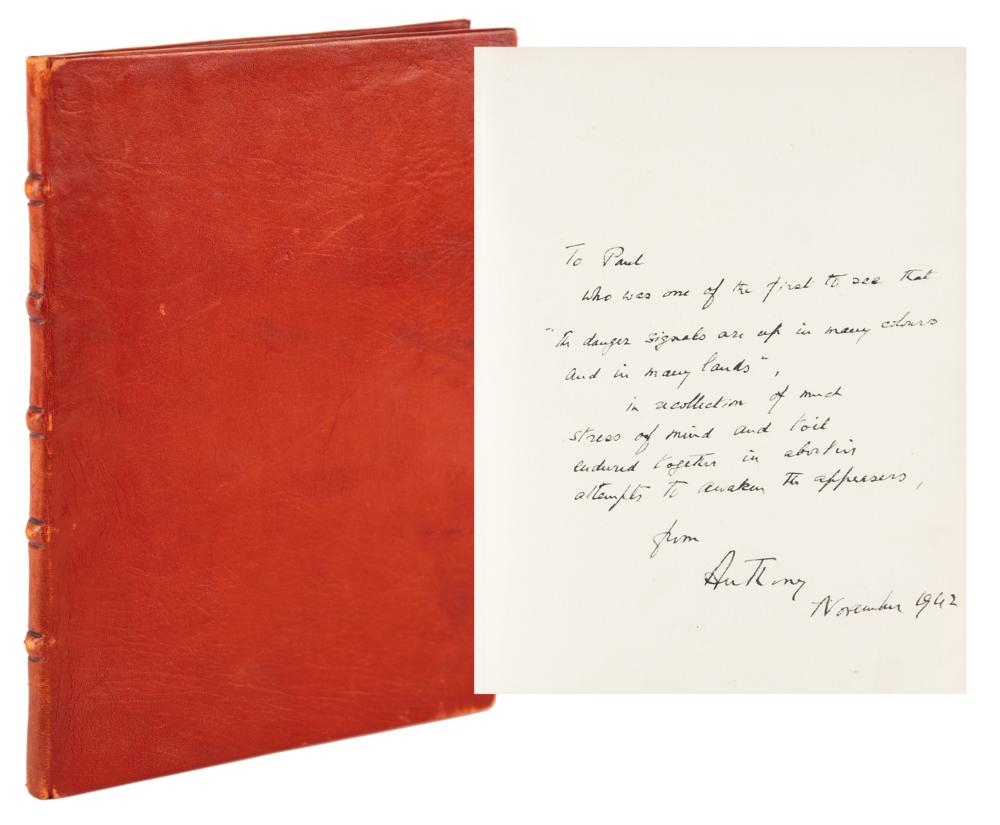 To Paul
who was one of the first to see that
"The danger signals are up in many colours
and in many lands",
in recollection of much
stress of mind and toil
endured together in abortive
attempts to awaken the appeasers,
from
Anthony
November 1942